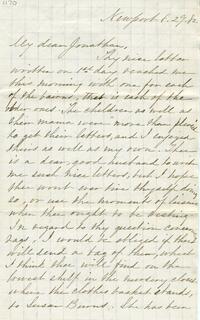 1170
Newport 8. 29. 82.
My dear Jonathan,
Thy nice letter
written on 1st day reached me
this morning with one for each
of the bairns, that is each of the
older ones. The children as well as
their mama were more than pleased
to get their letters, and I enjoyed
theirs as well as my own. Thee
is a dear, good husband, to write
me such nice letters, but I hope
thee wont over tire thyself doing
so, or use the moments of leisure
when thee ought to be resting
In regard to thy question concern.
rags, I would be obliged if thee
will send a bag of them, which
I think thee will find on the
lowest shelf in the nursery closet
where the clothes basket stands,
to Susan Burns. She has been